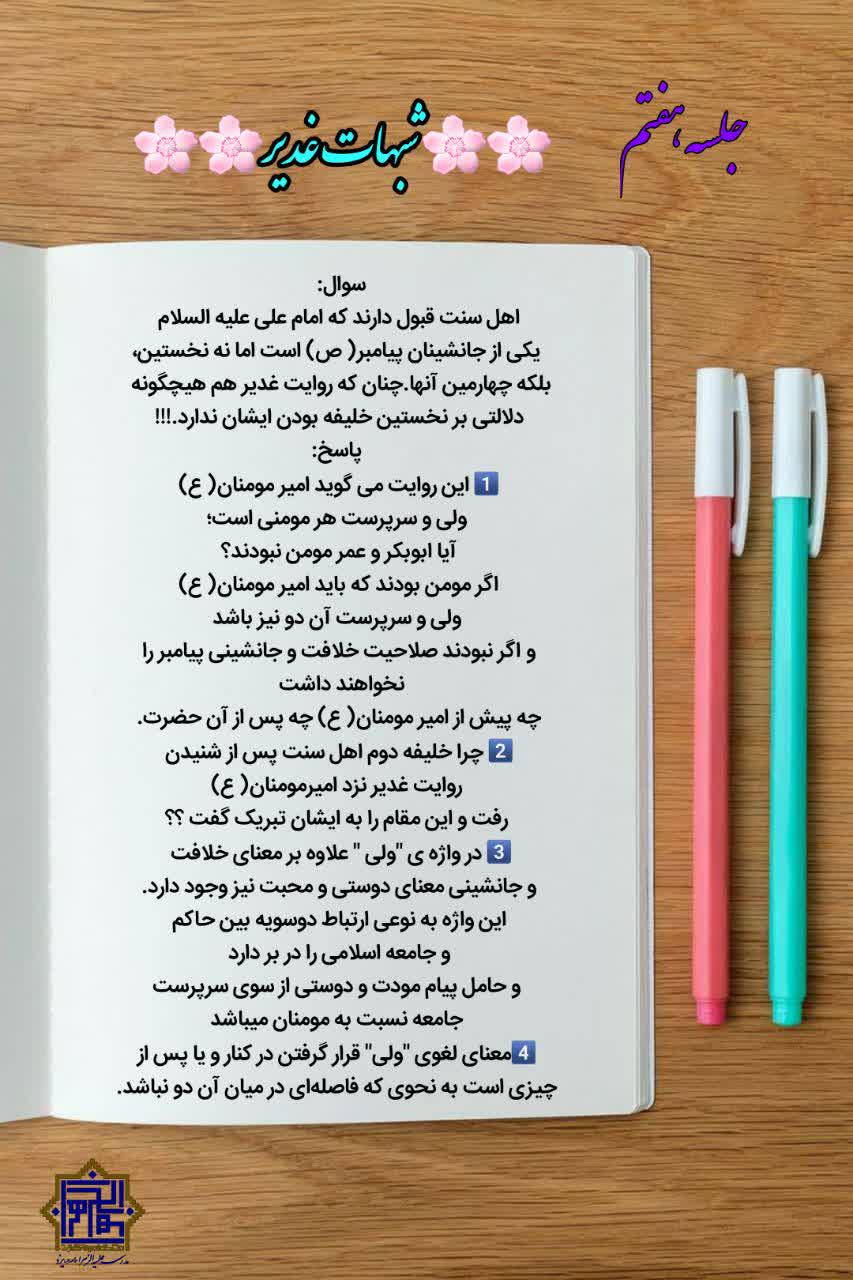 جلسه هفتم
شبهات غدیر
سوال:
اهل سنت قبول دارند که امام علی علیه السلام
یکی از جانشینان پیامبر( ص) است اما نه نخستین،
بلکه چهارمین آنها.چنان که روایت غدیر هم هیچگونه
دلالتی بر نخستین خلیفه بودن ایشان ندارد.!!!
پاسخ:
1️⃣ این روایت می گوید امیر مومنان( ع)
ولی و سرپرست هر مومنی است؛
آیا ابوبکر و عمر مومن نبودند؟
اگر مومن بودند که باید امیر مومنان( ع)
ولی و سرپرست آن دو نیز باشد
و اگر نبودند صلاحیت خلافت و جانشینی پیامبر را
نخواهند داشت
چه پیش از امیر مومنان( ع) چه پس از آن حضرت.
2️⃣ چرا خلیفه دوم اهل سنت پس از شنیدن
روایت غدیر نزد امیرمومنان( ع)
رفت و این مقام را به ایشان تبریک گفت ؟؟
3️⃣ در واژه ی "ولی " علاوه بر معنای خلافت
و جانشینی معنای دوستی و محبت نیز وجود دارد.
این واژه به نوعی ارتباط دوسویه بین حاکم
و جامعه اسلامی را در بر دارد
و حامل پیام مودت و دوستی از سوی سرپرست
جامعه نسبت به مومنان میباشد
4️⃣معنای لغوی "ولی" قرار گرفتن در کنار و یا پس از
چیزی است به نحوی که فاصله‌ای در میان آن دو نباشد.